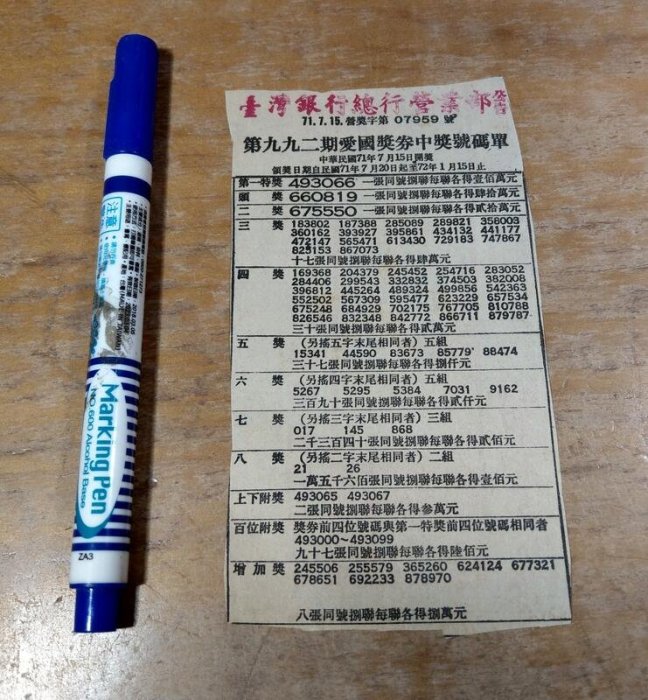 注意
Marking Pen
NO 600 Alcohol Base
ZA3
臺灣銀行總行營業部公告
71.7.15.營獎字第 07959 號
第九九二期愛國獎券中獎號碼單
中華民國71年7月15日開獎
領獎日期自民國71年7月20日起至72年1月15日止
第一特獎 493066 一張同號捌聯每聯各得壹佰萬元
頭獎 660819 一張同號捌聯每聯各得肆拾萬元
二獎 675550 一張同號捌聯每聯各得貳拾萬元
三獎 183802 187388 285089 289821 358003
360162 393927 395861 434132 441177
472147 565471 613430 729183 747867
825153 867073
十七張同號捌聯每聯各得肆萬元
四獎 169368 204379 245452 254716 283052
284406 299543 332832 374503 382008
396812 445264 489324 499856 542363
552502 567309 595477 623229 657534
675248 684929 702175 767705 810788
826546 832348 842772 866711 879787
三十張同號捌聯每聯各得貳萬元
五獎 (另搖五字末尾相同者) 五組
15341 44590 83673 85779 88474
三十七張同號捌聯每聯各得捌仟元
六獎 (另搖四字末尾相同者) 五組
5267 5295 5384 7031 9162
三百九十張同號捌聯每聯各得貳仟元
七獎 (另搖三字末尾相同者) 三組
017 145 868
二千三百四十張同號捌聯每聯各得貳佰元
八獎 (另搖二字末尾相同者) 二組
21 26
一萬五千六佰張同號捌聯每聯各得壹佰元
上下附獎 493065 493067
二張同號捌聯每聯各得參萬元
百位附獎 獎券前四位號碼與第一特獎前四位號碼相同者
493000~493099
九十七張同號捌聯每聯各得陸佰元
增加獎 245506 255579 365260 624124 677321
678651 692233 878970
八張同號捌聯每聯各得捌萬元